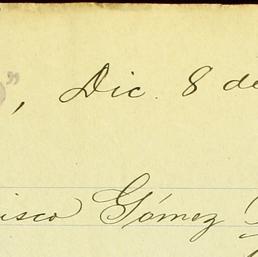 ", Dic. 8 de
isco Gómez